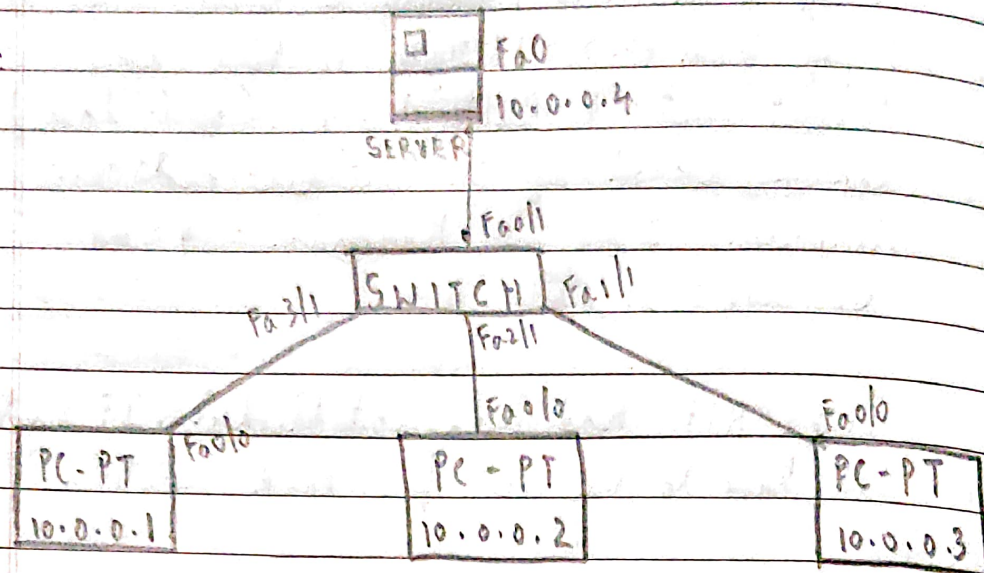 Fa0
10.0.0.4
SERVER
Fa0/1
SWITCH
Fa1/1
Fa3/1
Fa2/1
Fa0/0
Fa0/0
Fa0/0
PC-PT
PC-PT
PC-PT
10.0.0.1
10.0.0.2
10.0.0.3